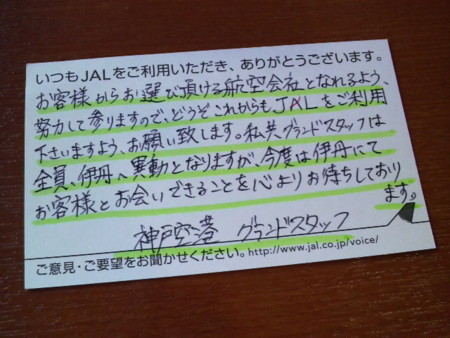 いつもJALをご利用いただき、ありがとうございます。
お客様からお選び頂ける航空会社となれるよう、
努力して参りますので、どうぞこれからもJALをご利用
下さいますよう、お願い致します。私共グランドスタッフは
全員、伊丹へ異動となりますが、今度は伊丹にて
お客様とお会いできることを心よりお待ちしており
ます。
神戸空港 グランドスタッフ
ご意見・ご要望をお聞かせください。http://www.jal.co.jp/voice/